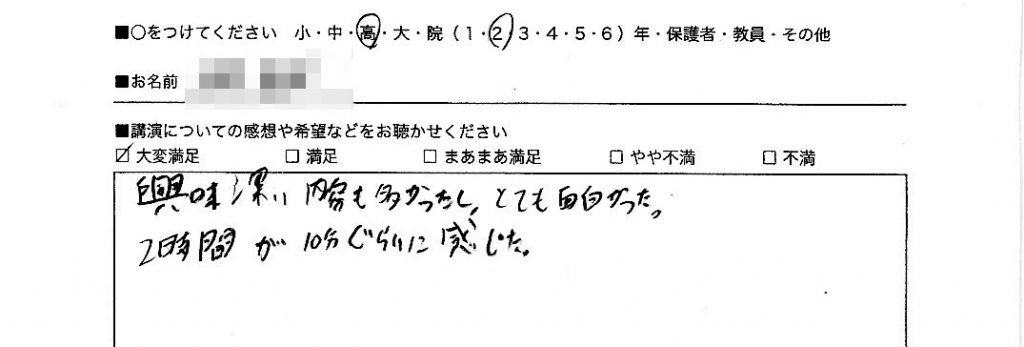 ■○をつけてください 小・中・高・大・院（1・2・3・4・5・6）年・保護者・教員・その他
■お名前
■講演についての感想や希望などをお聴かせください
☑ 大変満足 □ 満足 □ まあまあ満足 □ やや不満 □ 不満
興味深い内容も多かったし、とても面白かった。
2時間が10分ぐらいに感じた。